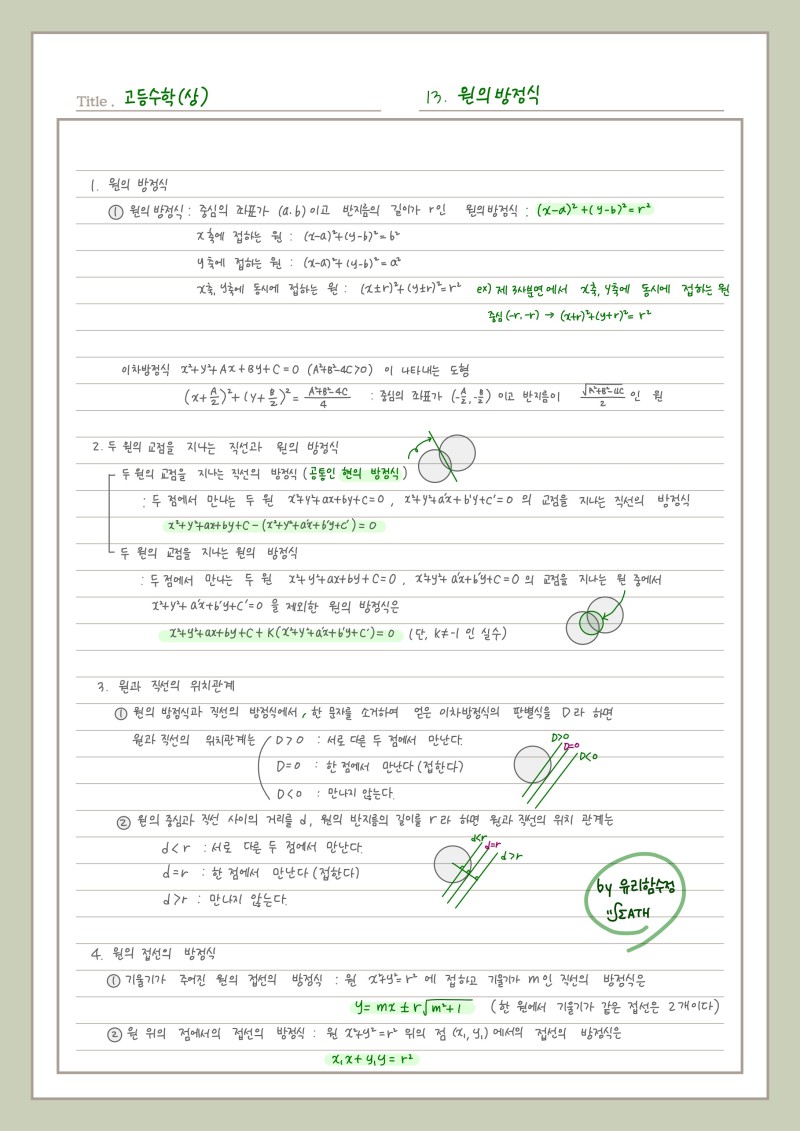 Title. 고등수학(상)
13. 원의 방정식
1. 원의 방정식
① 원의 방정식 : 중심의 좌표가 (a.b)이고 반지름의 길이가 r인 원의 방정식 : (x-a)²+(y-b)²=r²
x축에 접하는 원 : (x-a)²+(y-b)²=b²
y축에 접하는 원 : (x-a)²+(y-b)²=a²
x축, y축에 동시에 접하는 원 : (x±r)²+(y±r)²=r² ex) 제 3사분면에서 x축, y축에 동시에 접하는 원
중심(-r.-r) → (x+r)²+(y+r)²= r²
이차방정식 x²+y²+Ax+By+C=0 (A²+B²-4C>0) 이 나타내는 도형
(x+A/2)²+(y+B/2)²= (A²+B²-4C)/4 : 중심의 좌표가 (-A/2,-B/2) 이고 반지름이 √(A²+B²-4C)/2 인 원
2. 두 원의 교점을 지나는 직선과 원의 방정식
두 원의 교점을 지나는 직선의 방정식 (공통인 현의 방정식)
: 두 점에서 만나는 두 원 x²+y²+ax+by+C=0 , x²+y²+a'x+b'y+C'=0 의 교점을 지나는 직선의 방정식
x²+y²+ax+by+C-(x²+y²+a'x+b'y+C')=0
두 원의 교점을 지나는 원의 방정식
: 두 점에서 만나는 두 원 x²+y²+ax+by+C=0 , x²+y²+a'x+b'y+C'=0 의 교점을 지나는 원 중에서
x²+y²+a'x+b'y+C'=0 을 제외한 원의 방정식은
x²+y²+ax+by+C+K(x²+y²+a'x+b'y+C')=0 (단, K≠-1 인 실수)
3. 원과 직선의 위치관계
① 원의 방정식과 직선의 방정식에서, 한 문자를 소거하여 얻은 이차방정식의 판별식을 D라 하면
원과 직선의 위치관계는 D>0 : 서로 다른 두 점에서 만난다.
D=0 : 한 점에서 만난다(접한다)
D<0 : 만나지 않는다.
D>0
D=0
D<0
② 원의 중심과 직선 사이의 거리를 d, 원의 반지름의 길이를 r라 하면 원과 직선의 위치 관계는
d<r : 서로 다른 두 점에서 만난다.
d=r : 한 점에서 만난다(접한다)
d>r : 만나지 않는다.
d<r
d=r
d>r
by 유리함수정
"∫ΣATH
4. 원의 접선의 방정식
① 기울기가 주어진 원의 접선의 방정식 : 원 x²+y²=r² 에 접하고 기울기가 m인 직선의 방정식은
y=mx±r√(m²+1) (한 원에서 기울기가 같은 접선은 2개이다)
② 원 위의 점에서의 접선의 방정식 : 원 x²+y²=r² 위의 점 (x₁,y₁)에서의 접선의 방정식은
x₁x+y₁y=r²